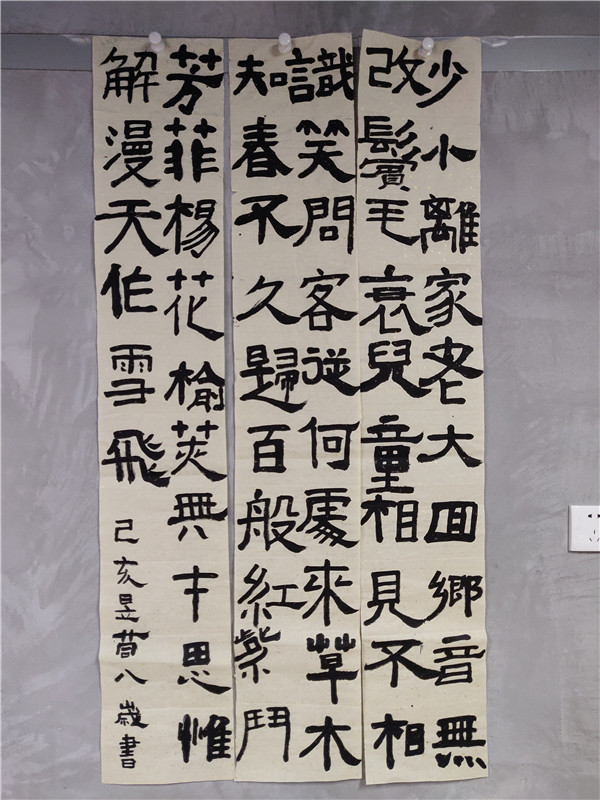 少小離家老大回鄉音無
改鬢毛衰兒童相見不相
識笑問客從何處來草木
知春不久歸百般紅紫鬥
芳菲楊花榆莢無才思惟
解漫天作雪飛
己亥昱荀八歲書